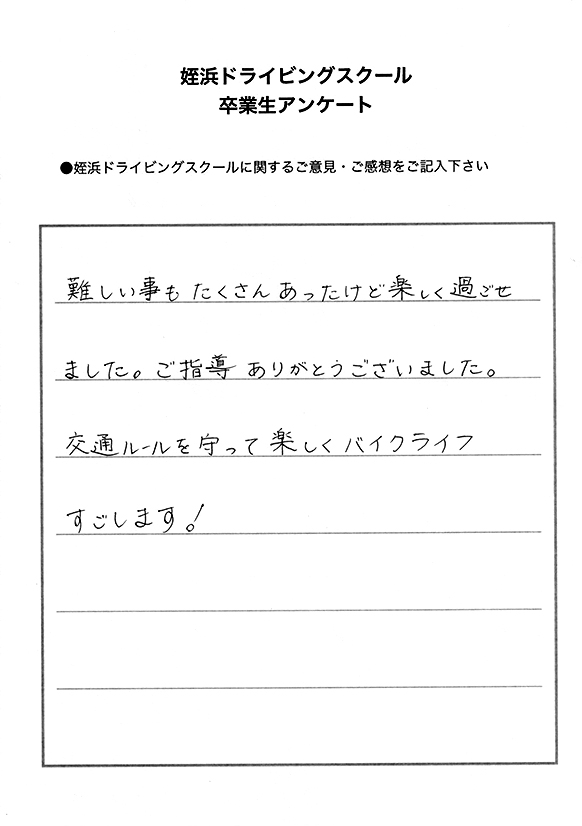 姪浜ドライビングスクール
卒業生アンケート
●姪浜ドライビングスクールに関するご意見・ご感想をご記入下さい
難しい事もたくさんあったけど楽しく過ごせ
ました。ご指導ありがとうございました。
交通ルールを守って楽しくバイクライフ
すごします!